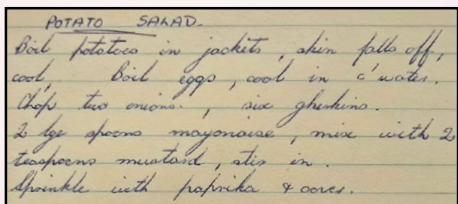 POTATO SALAD.
Boil potatoes in jackets, skin falls off,
cool, Boil eggs, cool in c' water.
Chop two onions, six gherkins.
2 lge spoons mayonaise, mix with 2
teaspoons mustard, stir in.
Sprinkle with paprika &